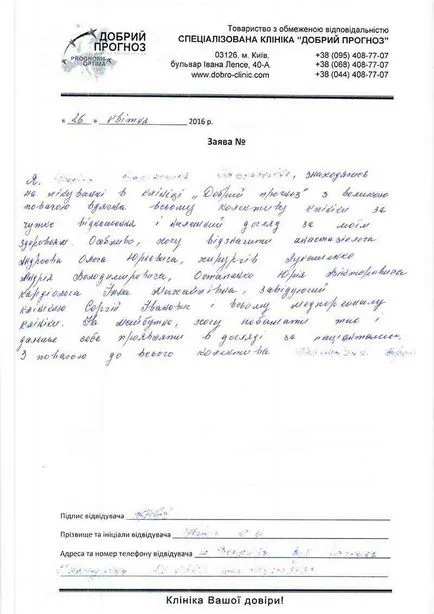 ДОБРИЙ
ПРОГНОЗ
PROGNOSIS
OPTIMA
Товариство з обмеженою відповідальністю
СПЕЦІАЛІЗОВАНА КЛІНІКА "ДОБРИЙ ПРОГНОЗ"
03126, м. Київ,
бульвар Івана Лепсе, 40-А
www.dobro-clinic.com
+38 (095) 408-77-07
+38 (068) 408-77-07
+38 (044) 408-77-07
« 26 » квітня 2016 р.
Заява №
Я, знаходячись
на лікуванні в клініці „Добрий прогноз" з великою
повагою вдячна всьому колективу клініки за
чутке відношення і належний догляд за моїм
здоровям. Особливо, хочу відзначити анастазіолога
Олега Юрієвича, хірургів Лукашенко
Андрія Володимировича, Остапенко Юрія Вікторовича
кардіолога Інна Михайлівна, завідуючий
клінікою Сергій Іванович і всьому медперсоналу
клініки. На майбутнє, хочу побажати так і
дальше себе проявляти в догляді за пацієнтами.
З повагою до всього колективу
Підпис відвідувача
Прізвище та ініціали відвідувача
Адреса та номер телефону відвідувача
Клініка Вашої довіри!